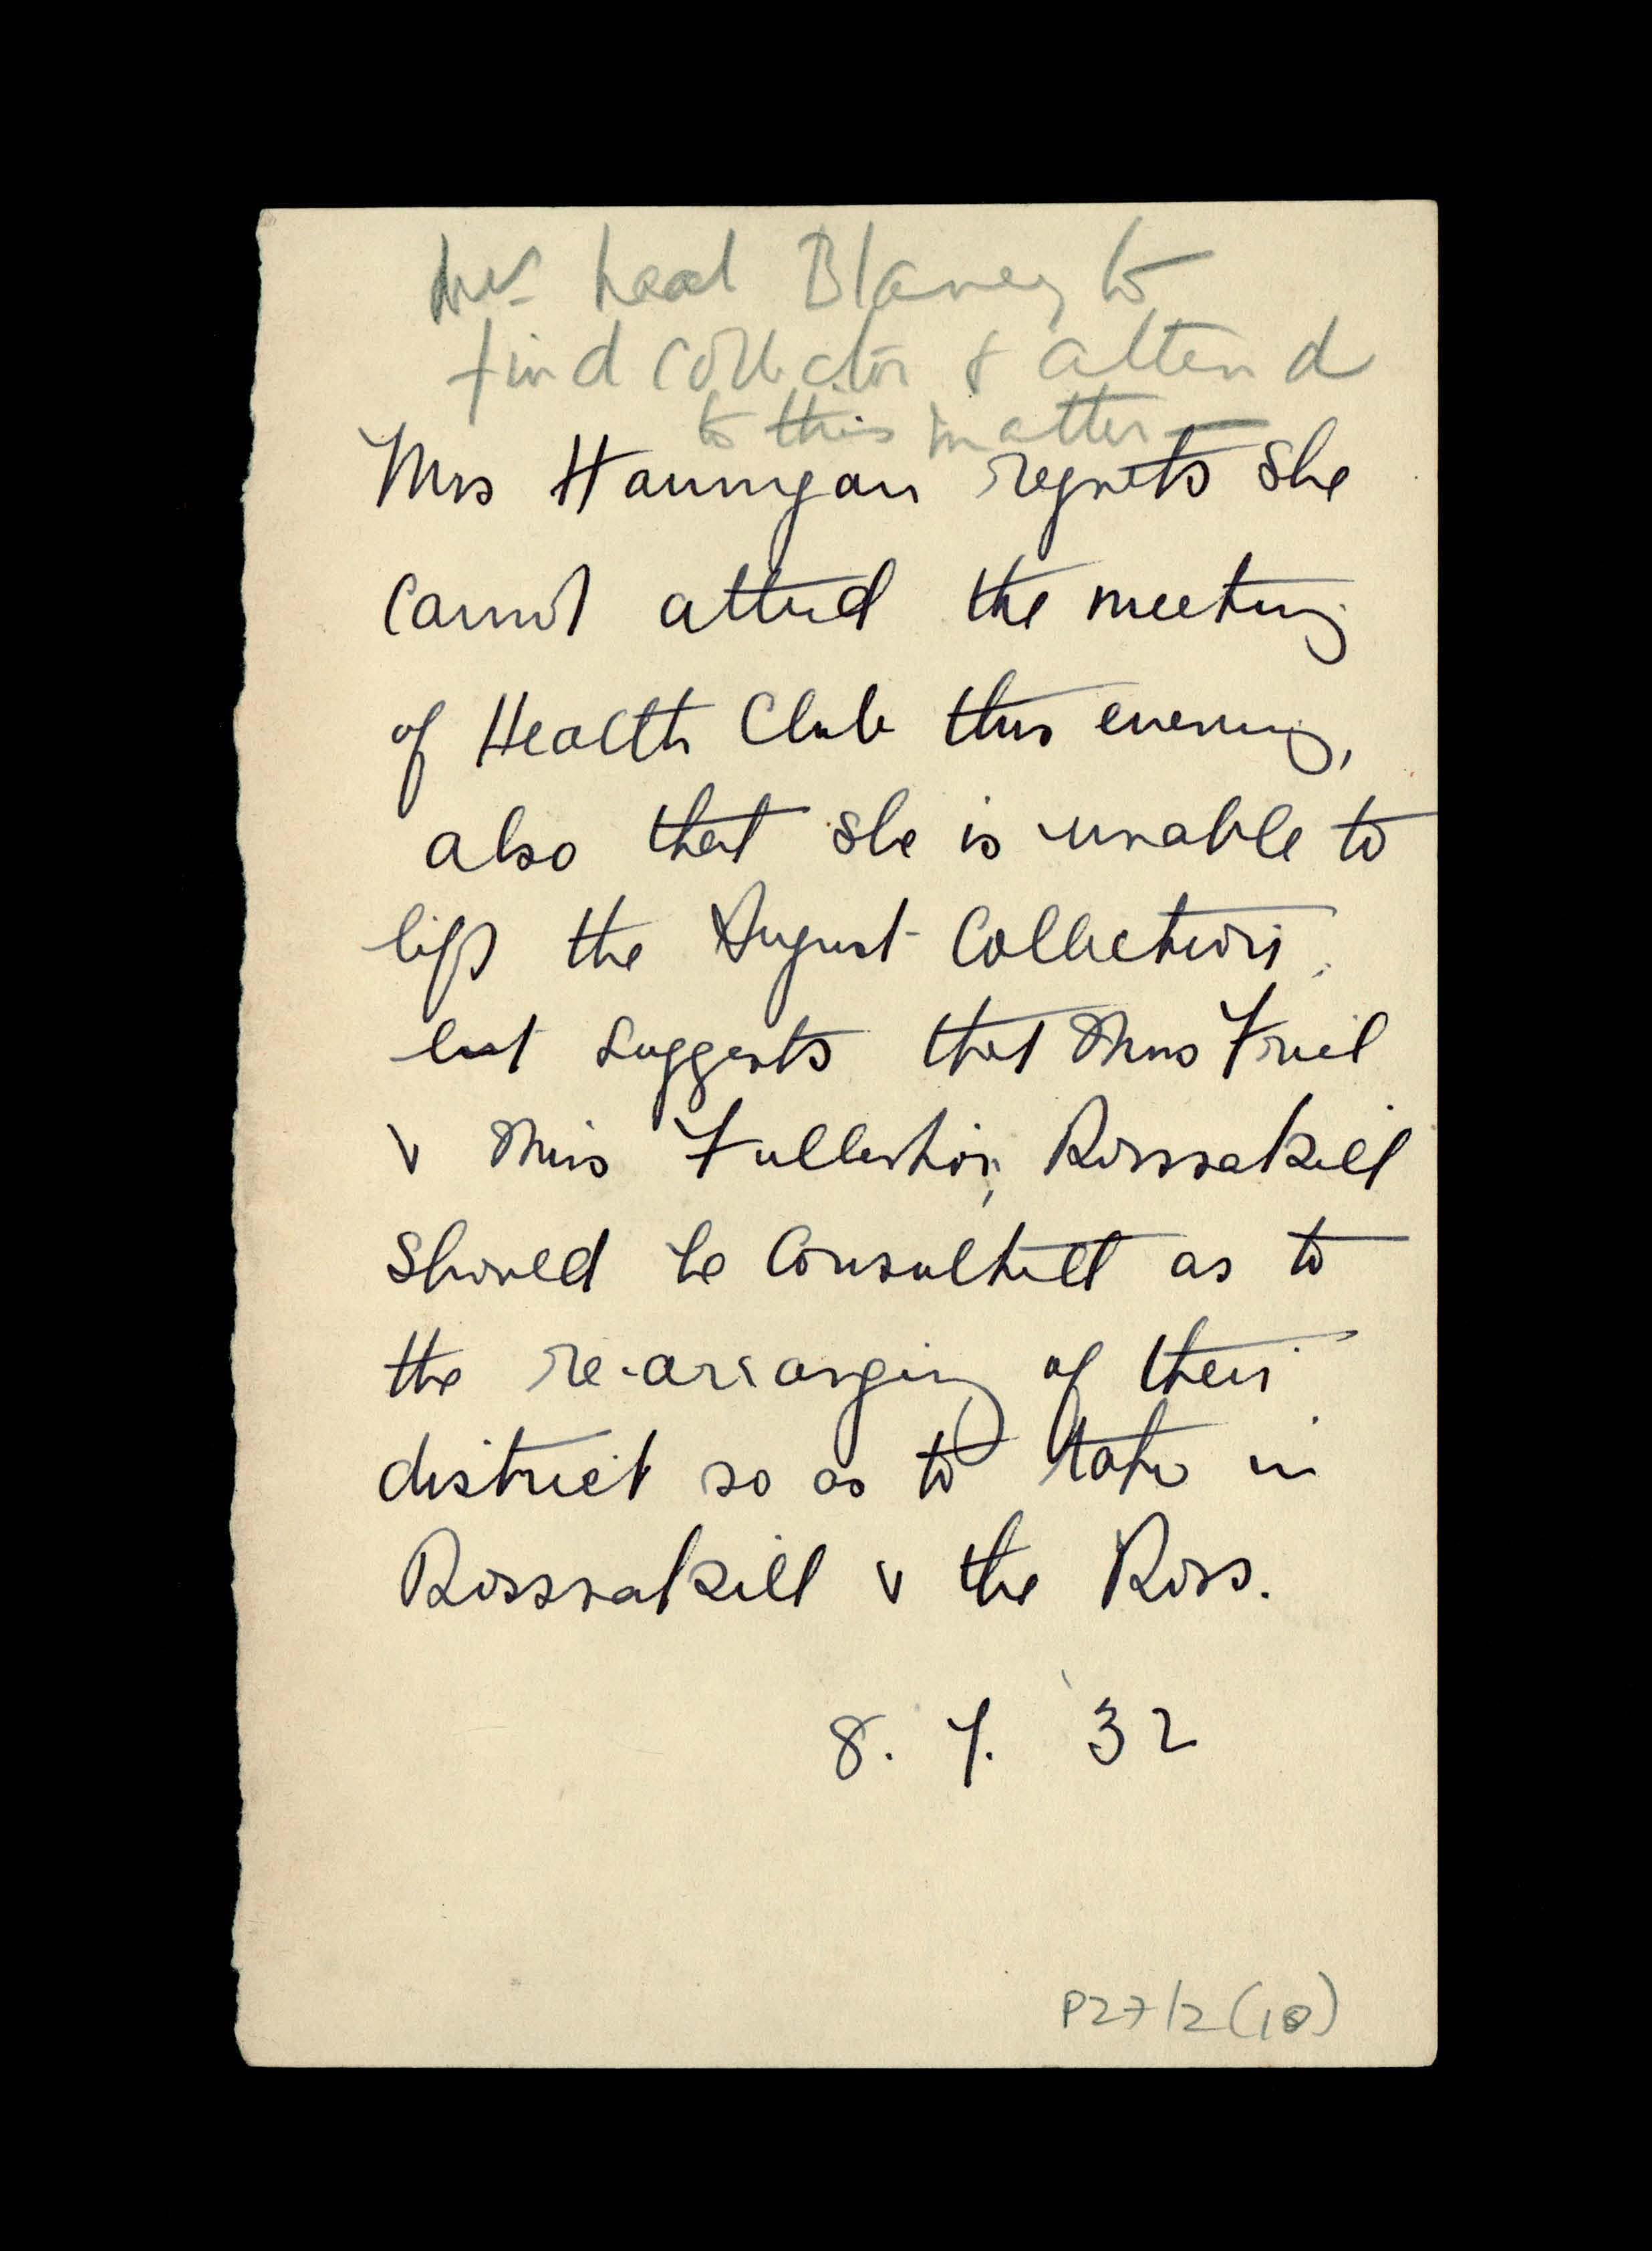 Mrs Neal Blaney to
find collector & attend
to this matter —
Mrs Hannigan regrets she
cannot attend the meeting
of Health Club this evening,
also that she is unable to
lift the August Collection,
but suggests that Miss Friel
& Miss Fullerton, Rossnakill
should be Consulted as to
the re-arranging of their
district so as to take in
Rossnakill & the Ross.
8. 7. '32
P27/2(10)